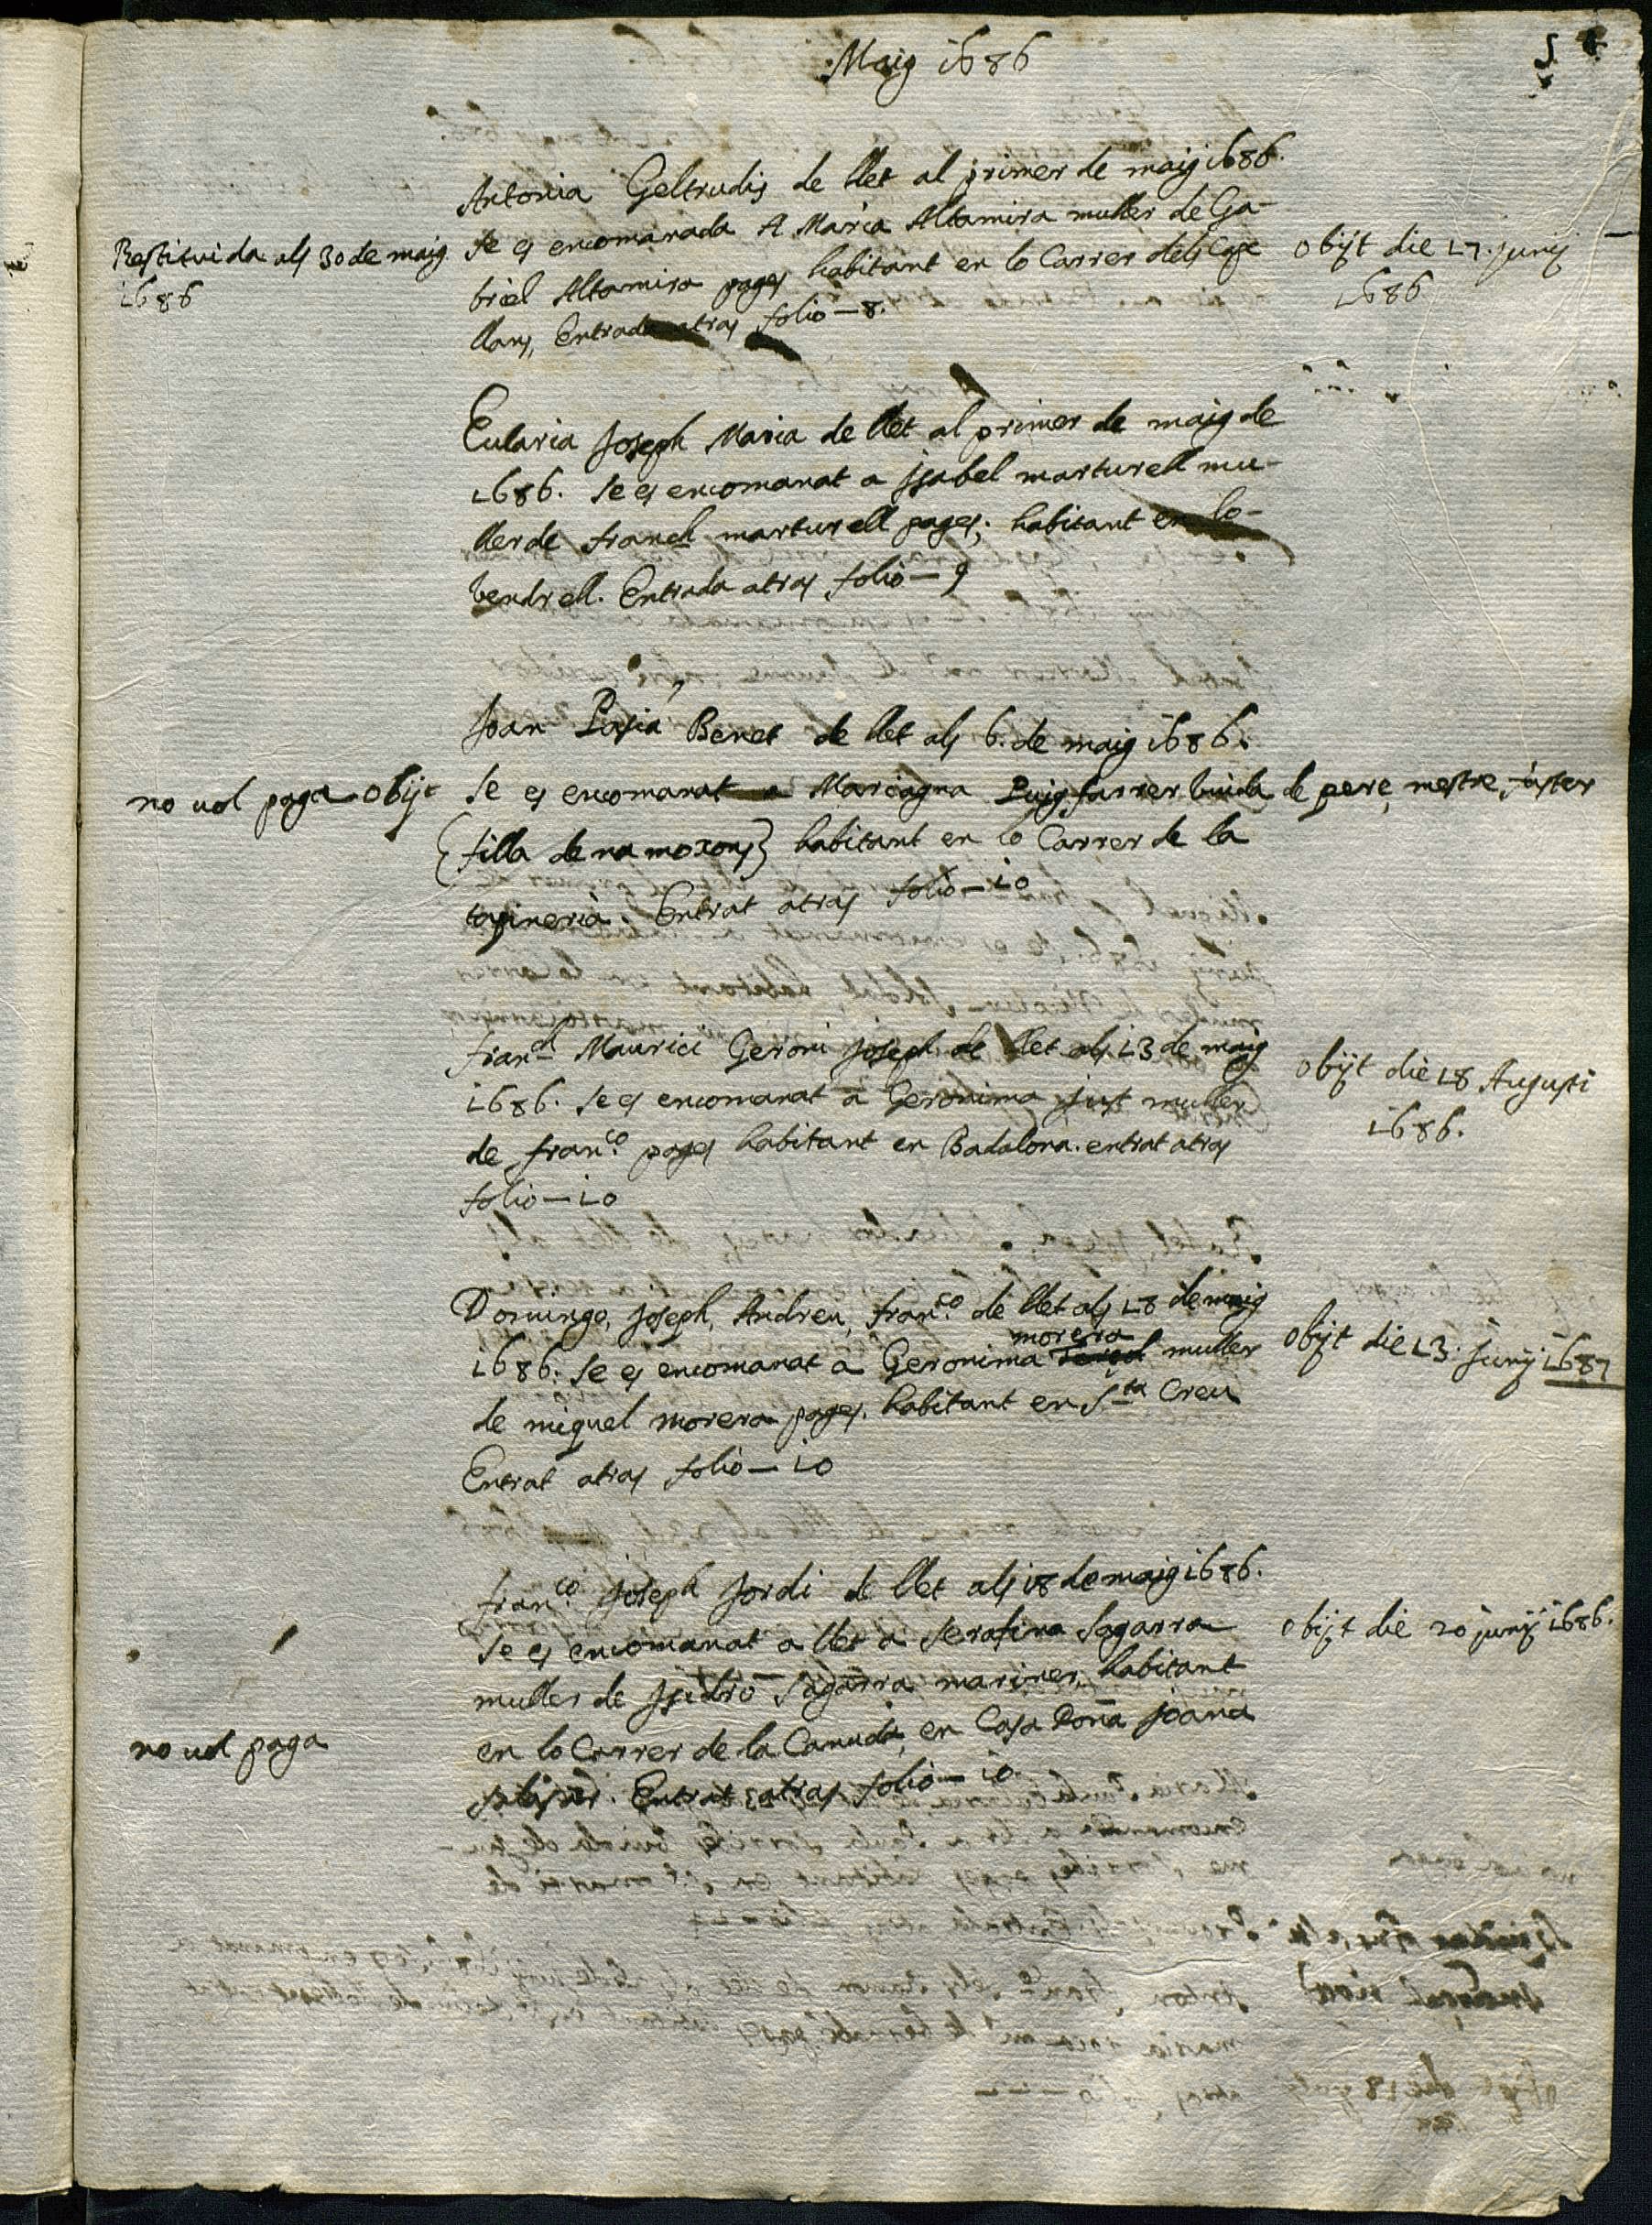 Maig 1686
5
Antonia Geltrudis de llet al primer de maig 1686.
se es encomanada A Maria Altamira muller de Ga-
briel Altamira pages habitant en lo Carrer dels Cape
llans, Entrada atras folio — 8.
Restituida als 30 de maig
1686
Obijt die 17. junij
1686
Eularia Joseph Maria de llet al primer de maig de
1686. se es encomanat a jsabel marturell mu-
ller de franch marturell pages, habitant en lo
vendrell. Entrada atras folio — 9
Joan Pasia Benet de llet als 6. de maig 1686.
no vol paga Obijt
se es encomanat a Mariagna Puigfarrer viuda de pere, mestre fuster
(filla de na moxons) habitant en lo Carrer de la
tapineria. Entrat atras folio — 10
franch Maurici Geroni Joseph de llet als 13 de maig
1686. se es encomanat a Geronima just muller
de franco pages habitant en Badalona. entrat atras
folio — 10
Obijt die 18 Augusti
1686.
Domingo, Joseph, Andreu, franco de llet als 18 de maig
morera
1686. se es encomanat a Geronima muller
de miquel morera pages, habitant en Sta Creu
Entrat atras folio — 10
Obijt die 13. junij 1687
franco Joseph Jordi de llet als 18 de maig 1686.
se es encomanat a llet a Serafina Sagarra
muller de Jsidro Sagarra mariner, habitant
en lo Carrer de la Canuda, en Casa Doña Joana
Entrat atras folio — 10.
no vol paga
Obijt die 20 junij 1686.